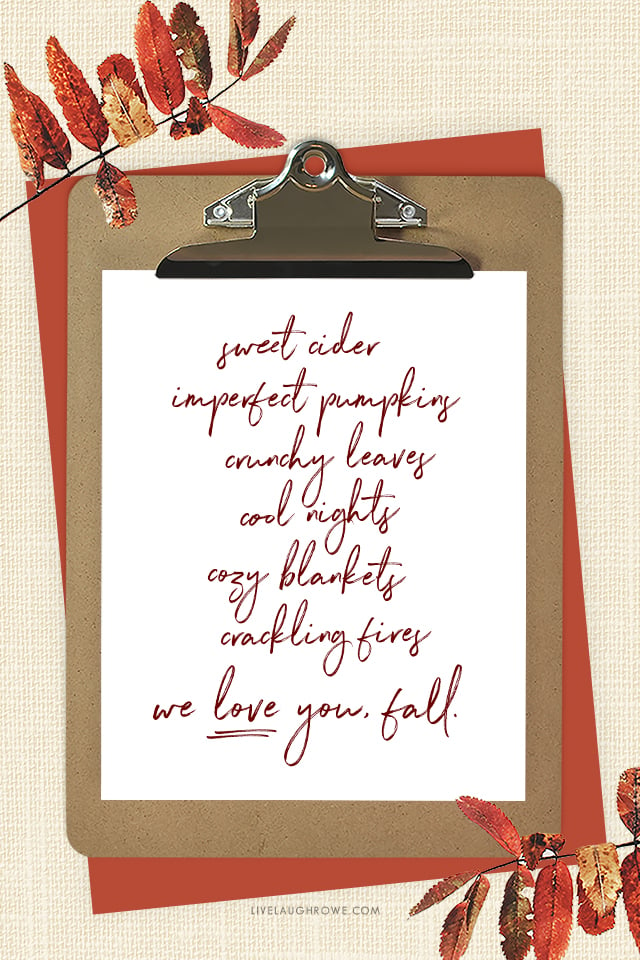 sweet cider
imperfect pumpkins
crunchy leaves
cool nights
cozy blankets
crackling fires
we love you, fall.
LIVELAUGHROWE.COM